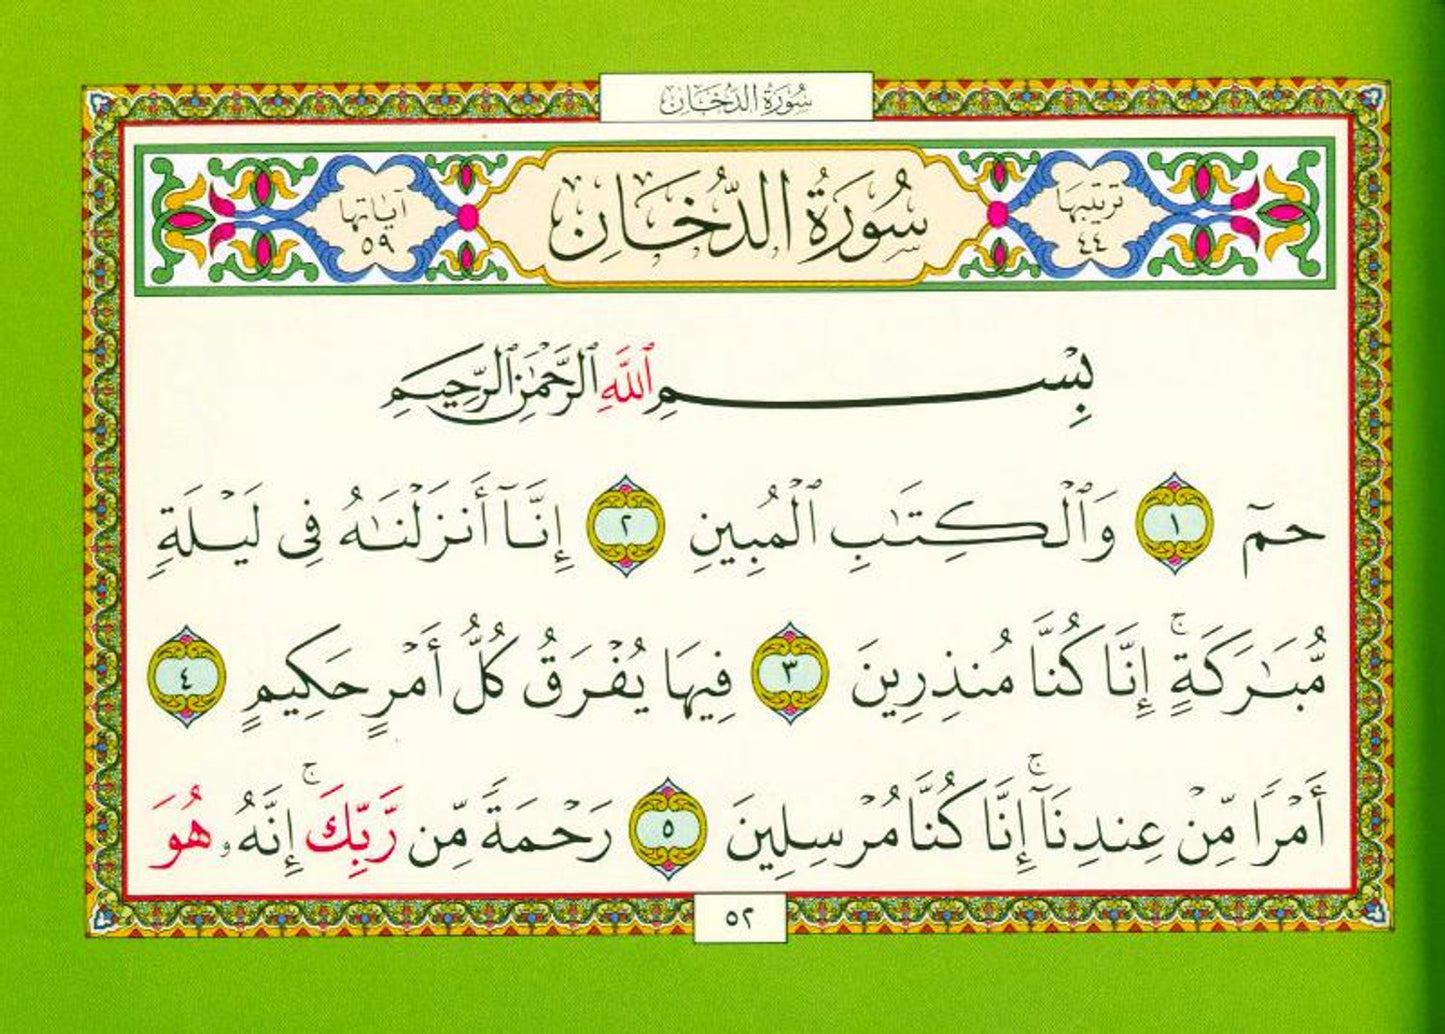 سُورَةُ الدُّخَانِ
ترتيبها
٤٤
سُورَةُ الدُّخَانِ
آياتها
٥٩
بِسْمِ ٱللَّهِ ٱلرَّحْمَٰنِ ٱلرَّحِيمِ
حمٓ ١ وَٱلْكِتَٰبِ ٱلْمُبِينِ ٢ إِنَّآ أَنزَلْنَٰهُ فِى لَيْلَةٍ
مُّبَٰرَكَةٍ ۚ إِنَّا كُنَّا مُنذِرِينَ ٣ فِيهَا يُفْرَقُ كُلُّ أَمْرٍ حَكِيمٍ ٤
أَمْرًا مِّنْ عِندِنَآ ۚ إِنَّا كُنَّا مُرْسِلِينَ ٥ رَحْمَةً مِّن رَّبِّكَ ۚ إِنَّهُۥ هُوَ
٥٢